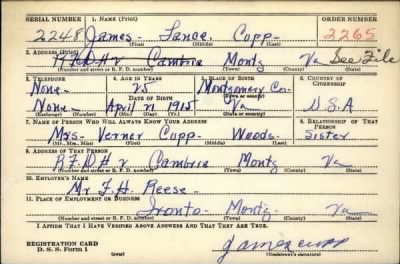 SERIAL NUMBER 1. NAME (Print) ORDER NUMBER
2248 James Lance Cupp 2265
(First) (Middle) (Last)
2. ADDRESS (Print)
RFD # 2 Cambria Montg Va See File
(Number and street or R. F. D. number) (Town) (County) (State)
3. TELEPHONE 4. AGE IN YEARS 5. PLACE OF BIRTH 6. COUNTRY OF CITIZENSHIP
None 25 Montgomery Co.
DATE OF BIRTH (Town or county)
None April 21 1915 Va U S A
(Exchange) (Number) (Mo.) (Day) (Yr.) (State or country)
7. NAME OF PERSON WHO WILL ALWAYS KNOW YOUR ADDRESS 8. RELATIONSHIP OF THAT PERSON
Mrs Verner Cupp Woods Sister
(Mr., Mrs., Miss) (First) (Middle) (Last)
9. ADDRESS OF THAT PERSON
RFD # 2 Cambria Montg Va
(Number and street or R. F. D. number) (Town) (County) (State)
10. EMPLOYER'S NAME
Mr. F. H. Reese
11. PLACE OF EMPLOYMENT OR BUSINESS
Ironto Montg Va
(Number and street or R. F. D. number) (Town) (County) (State)
I AFFIRM THAT I HAVE VERIFIED ABOVE ANSWERS AND THAT THEY ARE TRUE.
REGISTRATION CARD
D. S. S. Form 1 (over) James Cupp
(Registrant's signature)